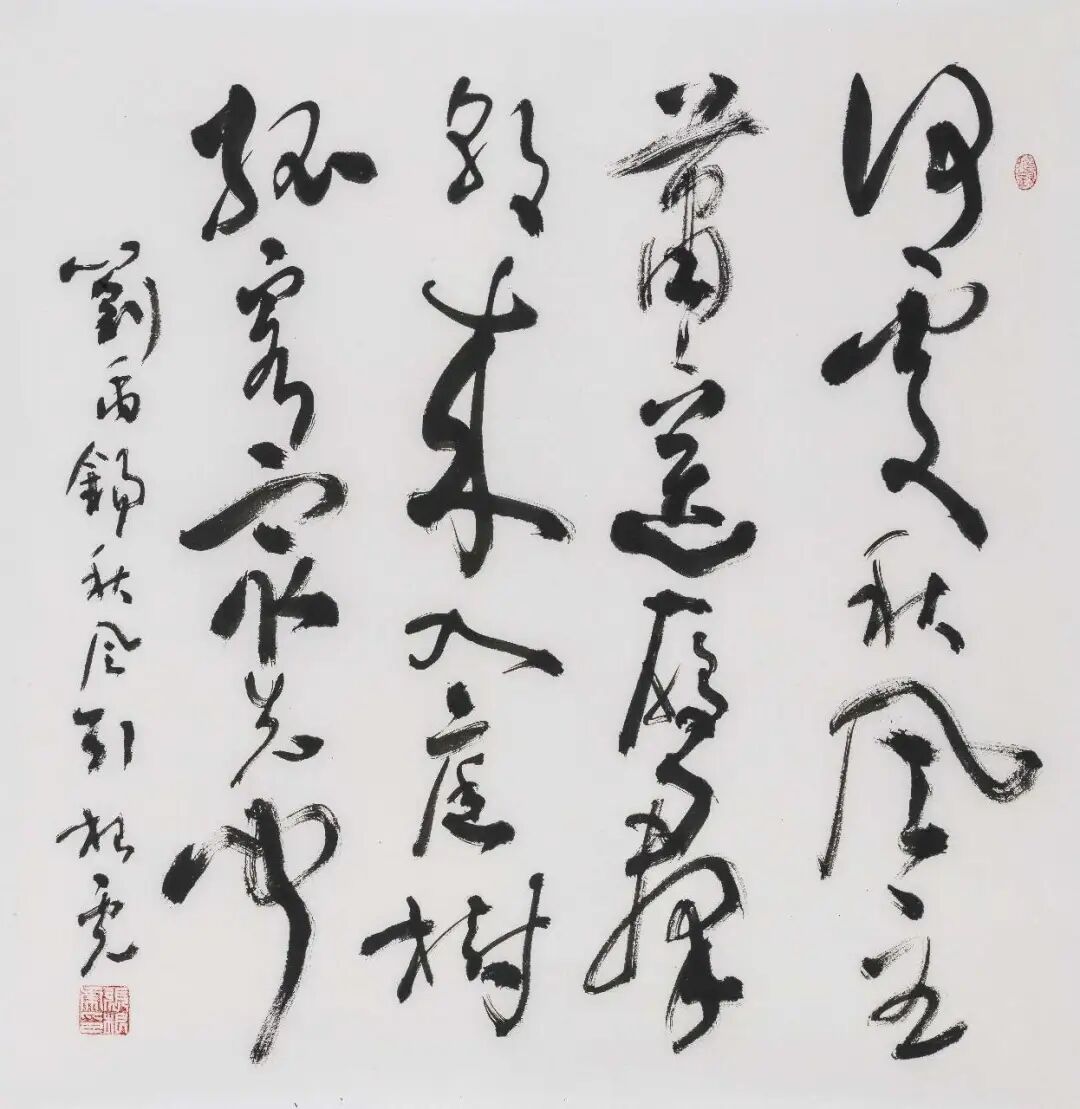 何處秋風至
蕭々送雁羣
朝来入庭樹
孤客最先聞
劉禹錫秋風引 根虎